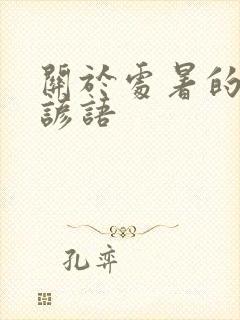 關於處暑的
諺語
孔弈